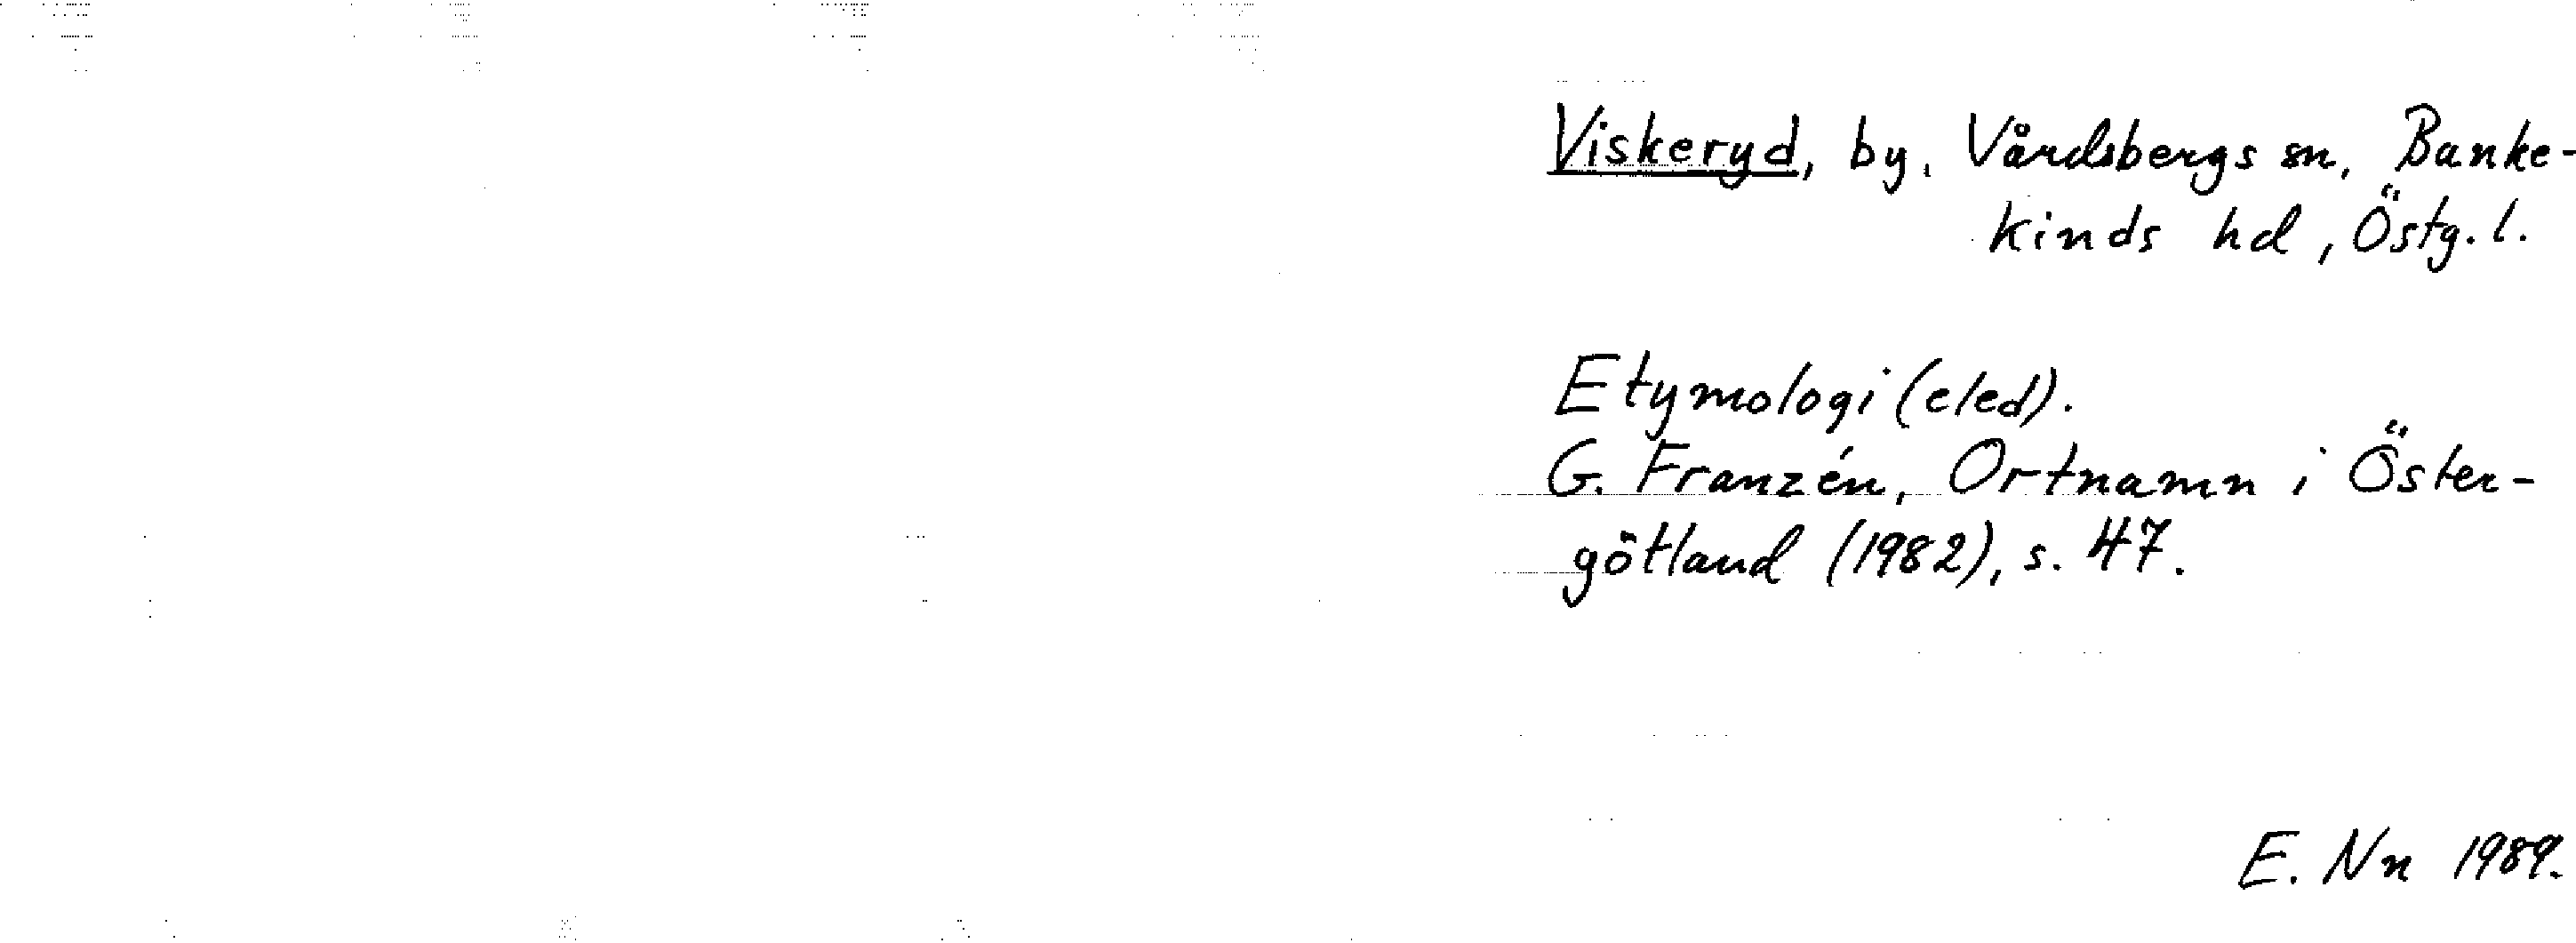 Viskeryd, by, Vårdsbergs sn, Banke-
kinds hd, Östg. l.
Etymologi (eled).
G. Franzén, Ortnamn i Öster-
götland (1982), s. 47.
E. Nn 1989.